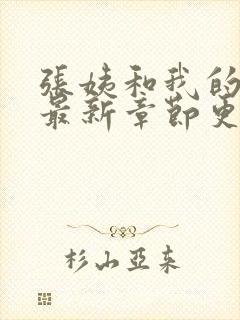 張姨和我的
最新章節更
杉山亞末